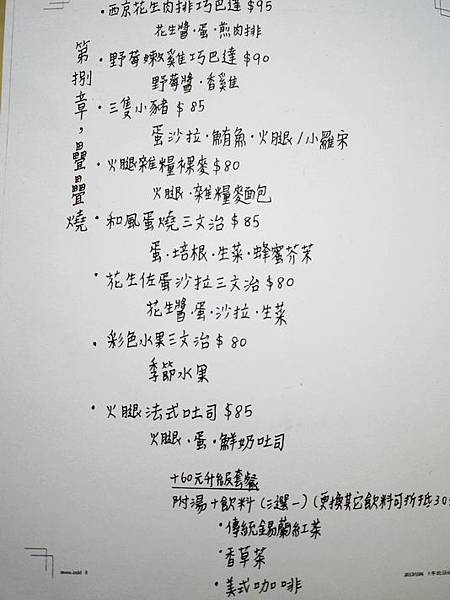 第捌章，疊疊燒
·西京花生肉排巧巴達 $95
花生醬·蛋·煎肉排
·野莓嫩雞巧巴達 $90
野莓醬·香雞
·三隻小豬 $85
蛋沙拉·鮪魚·火腿/小羅宋
·火腿雜糧裸麥 $80
火腿·雜糧麵包
·和風蛋燒三文治 $85
蛋·培根·生菜·蜂蜜芥茉
·花生佐蛋沙拉三文治 $80
花生醬·蛋·沙拉·生菜
·彩色水果三文治 $80
季節水果
·火腿法式吐司 $85
火腿·蛋·鮮奶吐司
+60元升級套餐
附湯+飲料(三選一)(更換其它飲料可折抵30
·傳統錫蘭紅茶
·香草茶
·美式咖啡